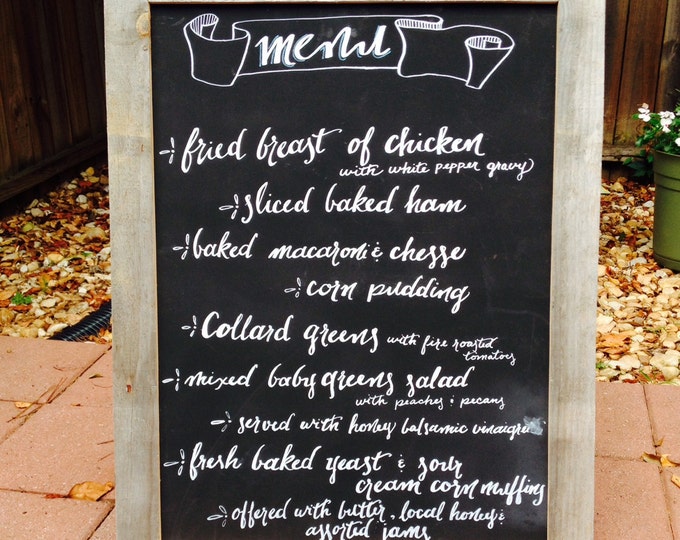 menu
fried breast of chicken
with white pepper gravy
sliced baked ham
baked macaroni & chesse
corn pudding
Collard greens with fire roasted
tomatoes
mixed baby greens salad
with peaches & pecans
served with honey balsamic vinaigrette
fresh baked yeast & sour
cream corn muffins
offered with butter, local honey &
assorted jams